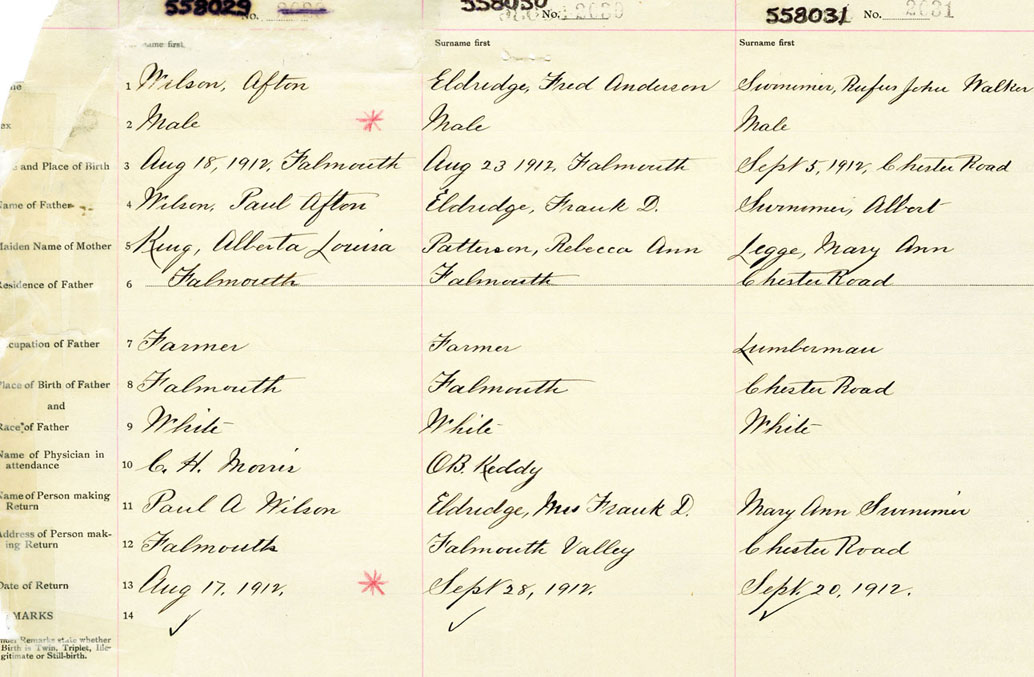 558029 No. 558030 No. 2030 558031 No. 2031
name first, Surname first Surname first
1 Wilson, Afton Eldredge, Fred Anderson Swinimer, Rufus John Walker
2 Male Male Male
and Place of Birth 3 Aug 18, 1912, Falmouth Aug 23 1912, Falmouth Sept 5, 1912, Chester Road
Name of Father 4 Wilson, Paul Afton Eldredge, Frank D. Swinimer, Albert
Maiden Name of Mother 5 King, Alberta Louisa Patterson, Rebecca Ann Legge, Mary Ann
Residence of Father 6 Falmouth Falmouth Chester Road
cupation of Father 7 Farmer Farmer Lumberman
Place of Birth of Father 8 Falmouth Falmouth Chester Road
and
Race of Father 9 White White White
Name of Physician in
attendance 10 C. H. Morris OB. Keddy
Name of Person making
Return 11 Paul A Wilson Eldredge, Mrs Frank D. Mary Ann Swinimer
Address of Person mak-
ing Return 12 Falmouth Falmouth Valley Chester Road
Date of Return 13 Aug 17, 1912, Sept 28, 1912. Sept. 20, 1912.
MARKS 14
nder Remarks state whether
Birth is Twin, Triplet, Ille-
gitimate or Still-birth.